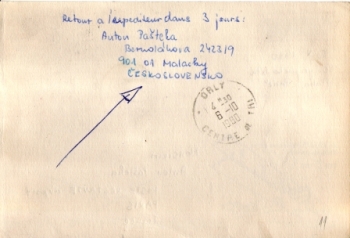 Retour a l'expediteur dans 3 jours:
Anton Pašteka
Bernolákova 2423/9
901 01 Malacky
ČESKOSLOVENSKO
ORLY
6-10
1980
CENTRE
11